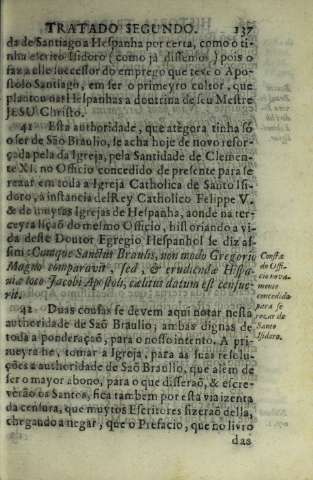 TRATADO SEGUNDO. 137
da de Santiago a Hespanha por certa, como o ti-
nha escrito Isidoro (como já dissemos) pois o
faz a elle successor do emprego que teve o Apo-
stolo Santiago, em ser o primeyro cultor, que
plantou nas Hespanhas a doutrina de seu Mestre
JESU Christo.
41 Esta authoridade, que atègora tinha só
o ser de Saõ Braulio, se acha hoje de novo refor-
çada pela da Igreja, pela Santidade de Clemen-
te XI. no Officio concedido de presente para se
rezar em toda a Igreja Catholica de Santo Isi-
doro, a instancia delRey Catholico Felippe V.
& de muytas Igrejas de Hespanha, aonde na ter-
ceyra liçaõ do mesmo Officio, historiando a vi-
da deste Doutor Egregio Hespanhol se diz as-
sim: Cumque Sanctus Braulis, non modo Gregorio
Magno comparavit, sed, & erudiendæ Hispa-
niæ loco Jacobi Apostoli, cælitus datum est censue-
rit.
Consta
do Offi-
cio novamente
concedido
para se
rezar de
Santo
Isidoro.
42 Duas cousas se devem aqui notar nesta
authoridade de Saõ Braulio; ambas dignas de
toda a ponderaçaõ, para o nosso intento. A pri-
meyra he, tomar a Igreja, para as suas resolu-
ções a authoridade de Saõ Braulio, que alèm de
ser o mayor abono, para o que disseraõ, & escre-
veraõ os Santos, fica tambem por esta via izenta
da censura, que muytos Escritores fizeraõ della,
chegando a negar, que o Prefacio, que no livro
das